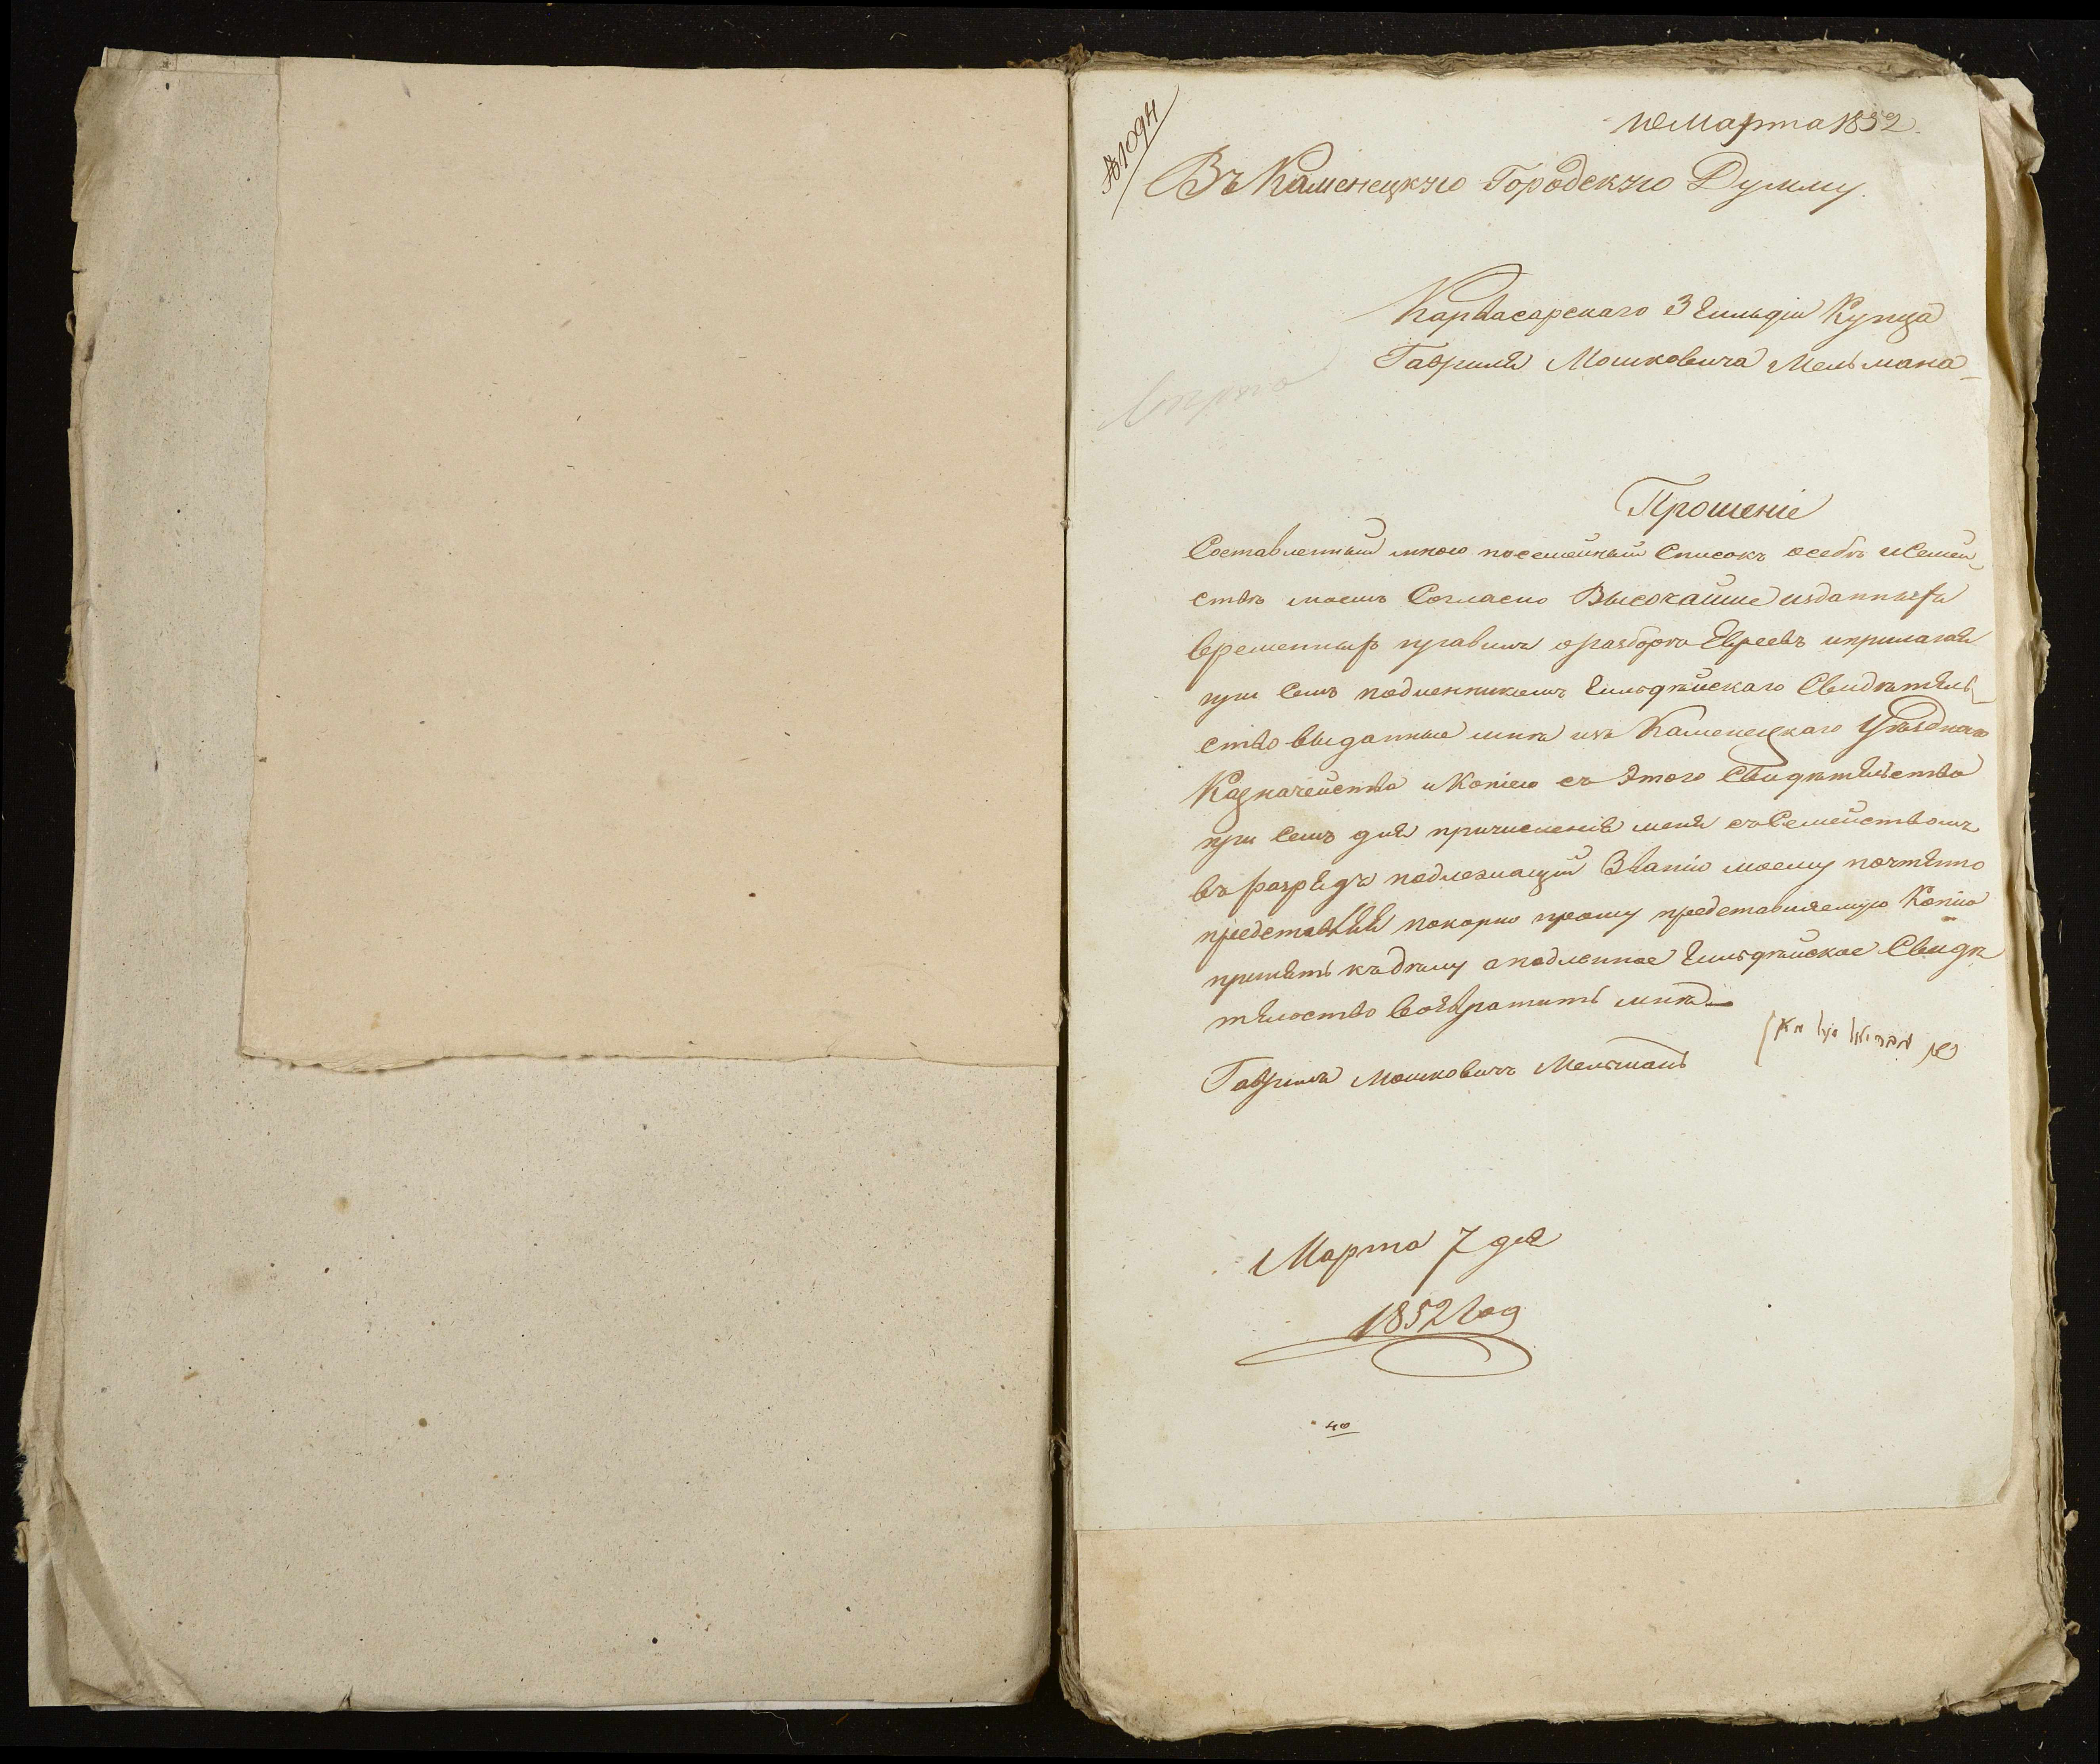 №1094
10 Марта 1852.
Въ Каменецкую Городскую Думму.
Карвасарскаго 3 Гильдіи Купца
Гавриля Мошковича Мельмана
Прошеніе
Составленный мною посемейный Списокъ особъ и Семей-
ствъ моемъ Согласно Высочайше изданныхъ
временныхъ правилъ о разборѣ Евреевъ и прилагая
при Семъ подленникомъ Гильдѣйскаго Свидѣтель-
ство выданные мнѣ изъ Каменецкаго Уѣзднаго
Казначейства и Копіею съ Этого Свидѣтельства
при Семъ для причисленія меня съ Семействомъ
въ разрядъ подлежащій Званію моему почтенно
представляя покорно прошу представляемую Копію
принять къ дѣлу а подленное Гильдѣйское Свидѣ
тельство возвратить мнѣ
Гавриль Мошковичъ Мельманъ
Марта 7 дня
1852 год
40